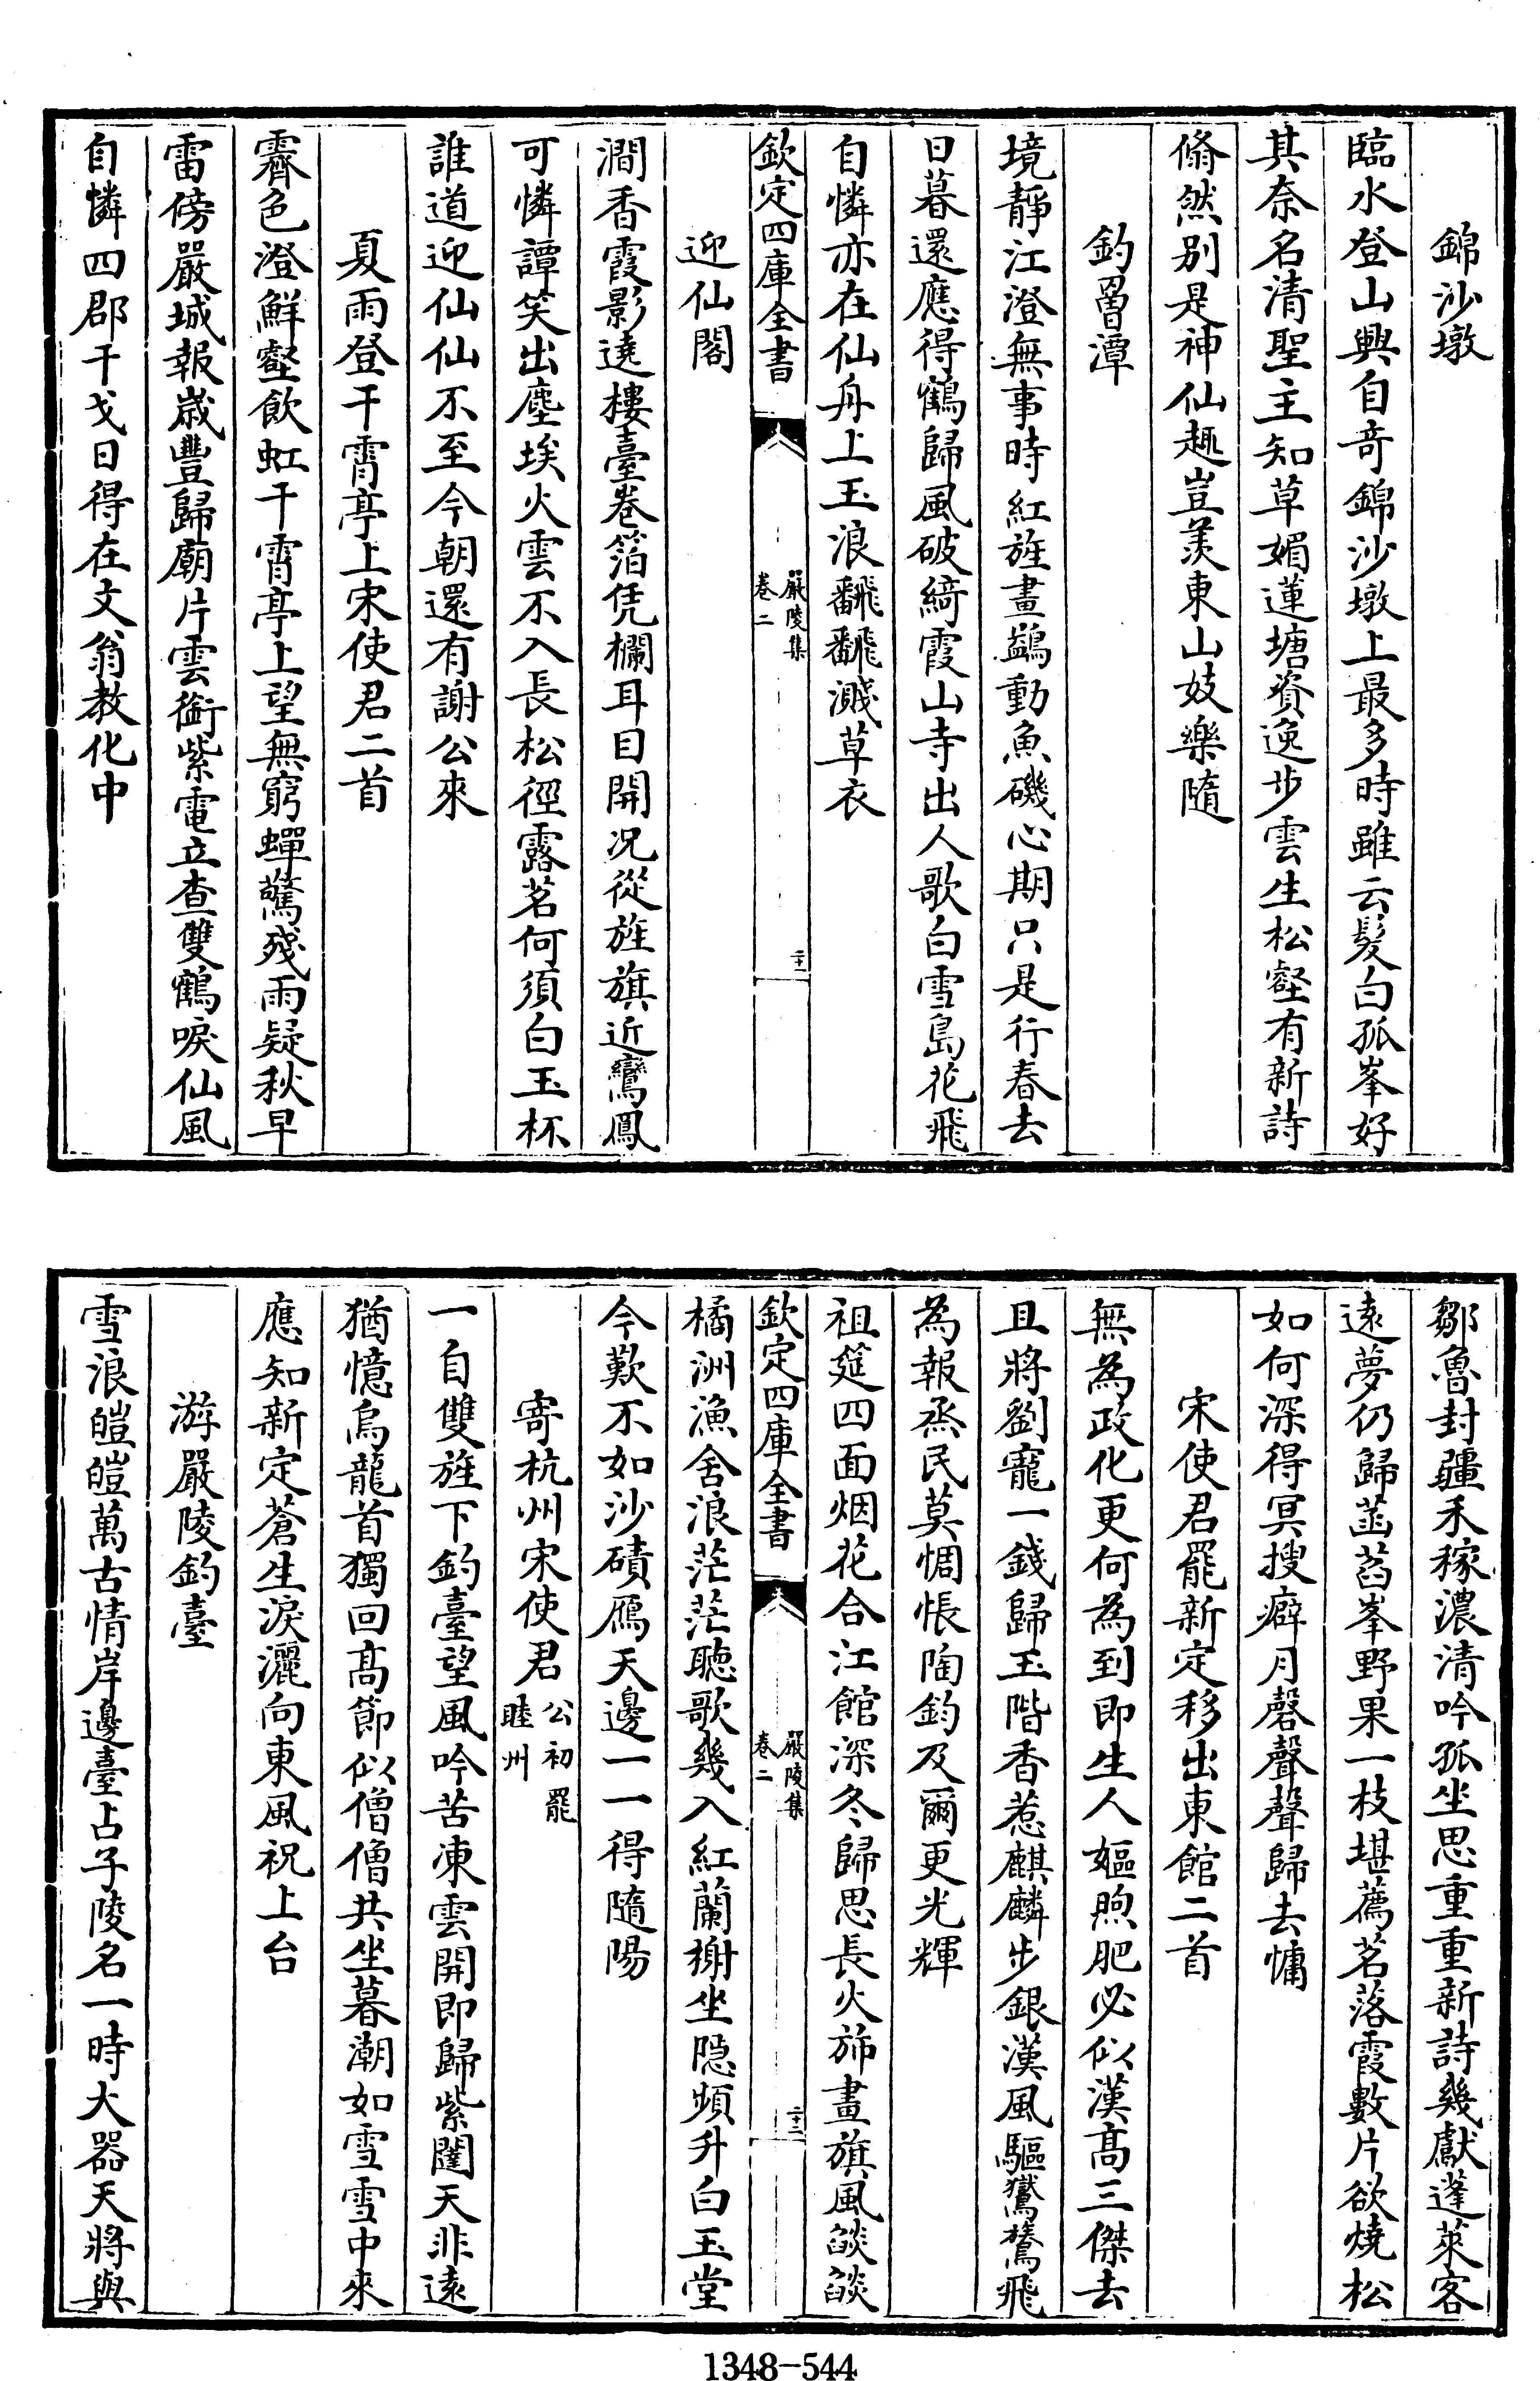 錦沙墩
臨水登山興自奇錦沙墩上最多時雖云髮白孤峯好
其奈名清聖主知草媚蓮塘資逸步雲生松壑有新詩
翛然别是神仙趣豈羡東山妓樂隨
釣罾潭
境靜江澄無事時紅旌畫鷁動魚磯心期只是行春去
日暮還應得鶴歸風破綺霞山寺出人歌白雪島花飛
自憐亦在仙舟上玉浪翻翻濺草衣
欽定四庫全書
嚴陵集
卷二
二十一
迎仙閣
澗香霞影遶樓臺卷箔凭欄耳目開况從旌旗近鸞鳳
可憐譚笑出塵埃火雲不入長松徑露茗何須白玉杯
誰道迎仙仙不至今朝還有謝公來
夏雨登干霄亭上宋使君二首
霽色澄鮮壑飲虹干霄亭上望無窮蟬驚殘雨疑秋早
雷傍嚴城報歲豐歸廟片雲銜紫電立查雙鶴唳仙風
自憐四郡干戈日得在文翁教化中
鄒魯封疆禾稼濃清吟孤坐思重重新詩幾獻蓬萊客
遠夢仍歸菡萏峯野果一枝堪薦茗落霞數片欲燒松
如何深得冥搜癖月磬聲聲歸去慵
宋使君罷新定移出東館二首
無為政化更何為到即生人嫗煦肥必似漢高三傑去
且將劉寵一錢歸玉階香惹麒麟步銀漢風驅鸑鷟飛
為報烝民莫惆悵陶鈞及爾更光輝
祖筵四面烟花合江館深冬歸思長火斾畫旗風燄燄
欽定四庫全書
嚴陵集
卷二
二十二
橘洲漁舍浪茫茫聽歌幾入紅蘭榭坐隱頻升白玉堂
今歎不如沙磧鴈天邊一一得隨陽
寄杭州宋使君公初罷睦州
一自雙旌下釣臺望風吟苦凍雲開即歸紫闥天非遠
猶憶烏龍首獨回高節似僧僧共坐暮潮如雪雪中來
應知新定蒼生淚灑向東風祝上台
游嚴陵釣臺
雪浪皚皚萬古情岸邊臺占子陵名一時大器天將與
1348-544